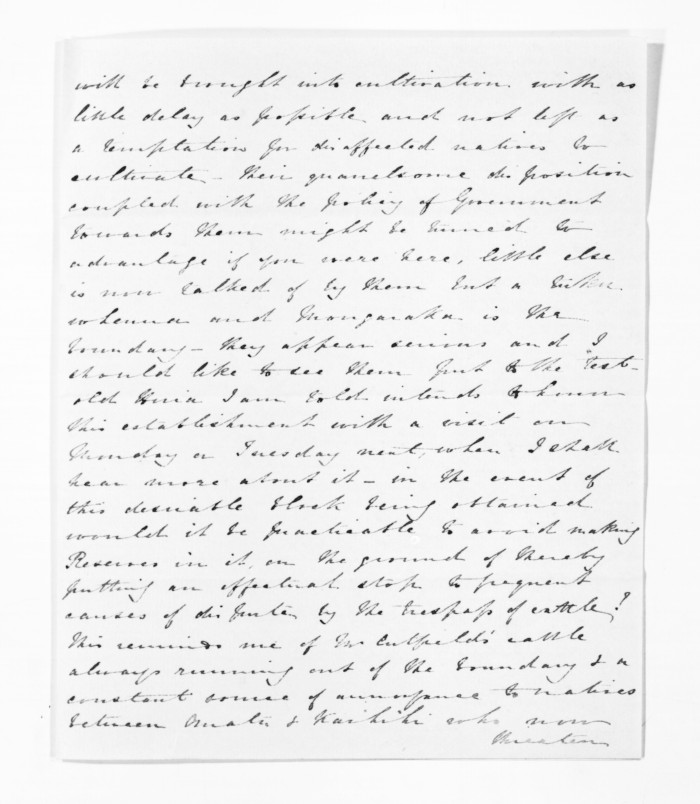 will be brought into cultivation with as
little delay as possible and not left as
a temptation for disaffected natives to
cultivate - their quarrelsome disposition
coupled with the policy of Government
towards them might be turned to
advantage if you were here, little else
is now talked of by them but a
whenua and Mangaraka is the
boundary - they appear serious and I
should like to see them put to the test -
old Huia I am told intends to honor
this establishment with a visit on
Monday or Tuesday next, when I shall
hear more about it - in the event of
this desirable block being obtained
would it be practicable to avoid making
Reserves in it, on the ground of thereby
putting an effectual stop to frequent
causes of dispute by the trespass of cattle?
This reminds me of Mr Culpeld's cattle
always running out of the boundary & a
constant source of annoyance to natives
between Omatu & Kaihihi who now
threaten